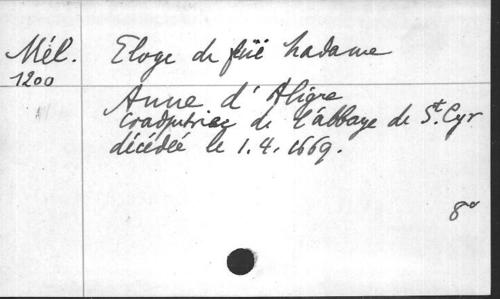 Mél. Eloge de füe Madame
1200
Anne d'Aligre
Coadjutrice de l'abbaye de St. Cyr
décédée le 1.4.1669.
8°